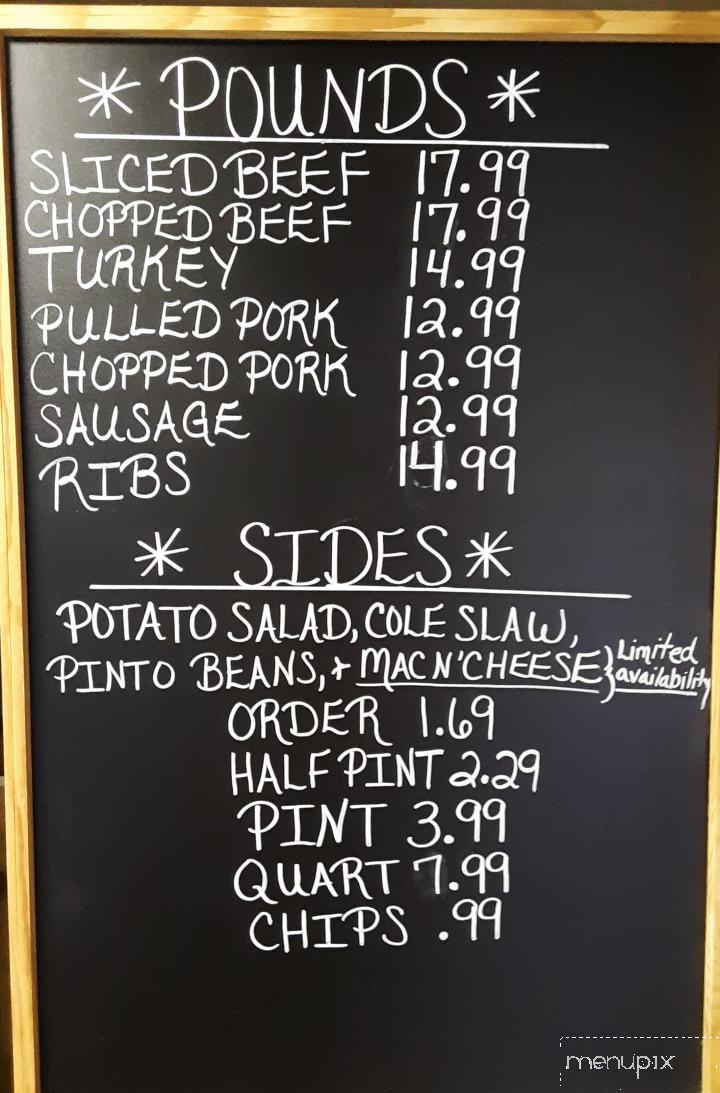 * POUNDS *
SLICED BEEF 17.99
CHOPPED BEEF 17.99
TURKEY 14.99
PULLED PORK 12.99
CHOPPED PORK 12.99
SAUSAGE 12.99
RIBS 14.99
* SIDES *
POTATO SALAD, COLE SLAW,
PINTO BEANS, + MAC N' CHEESE } Limited availability
ORDER 1.69
HALF PINT 2.29
PINT 3.99
QUART 7.99
CHIPS .99
menupix